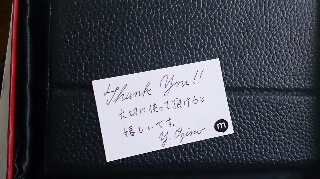 Thank You!!
大切に使って頂けると
嬉しいです。
m